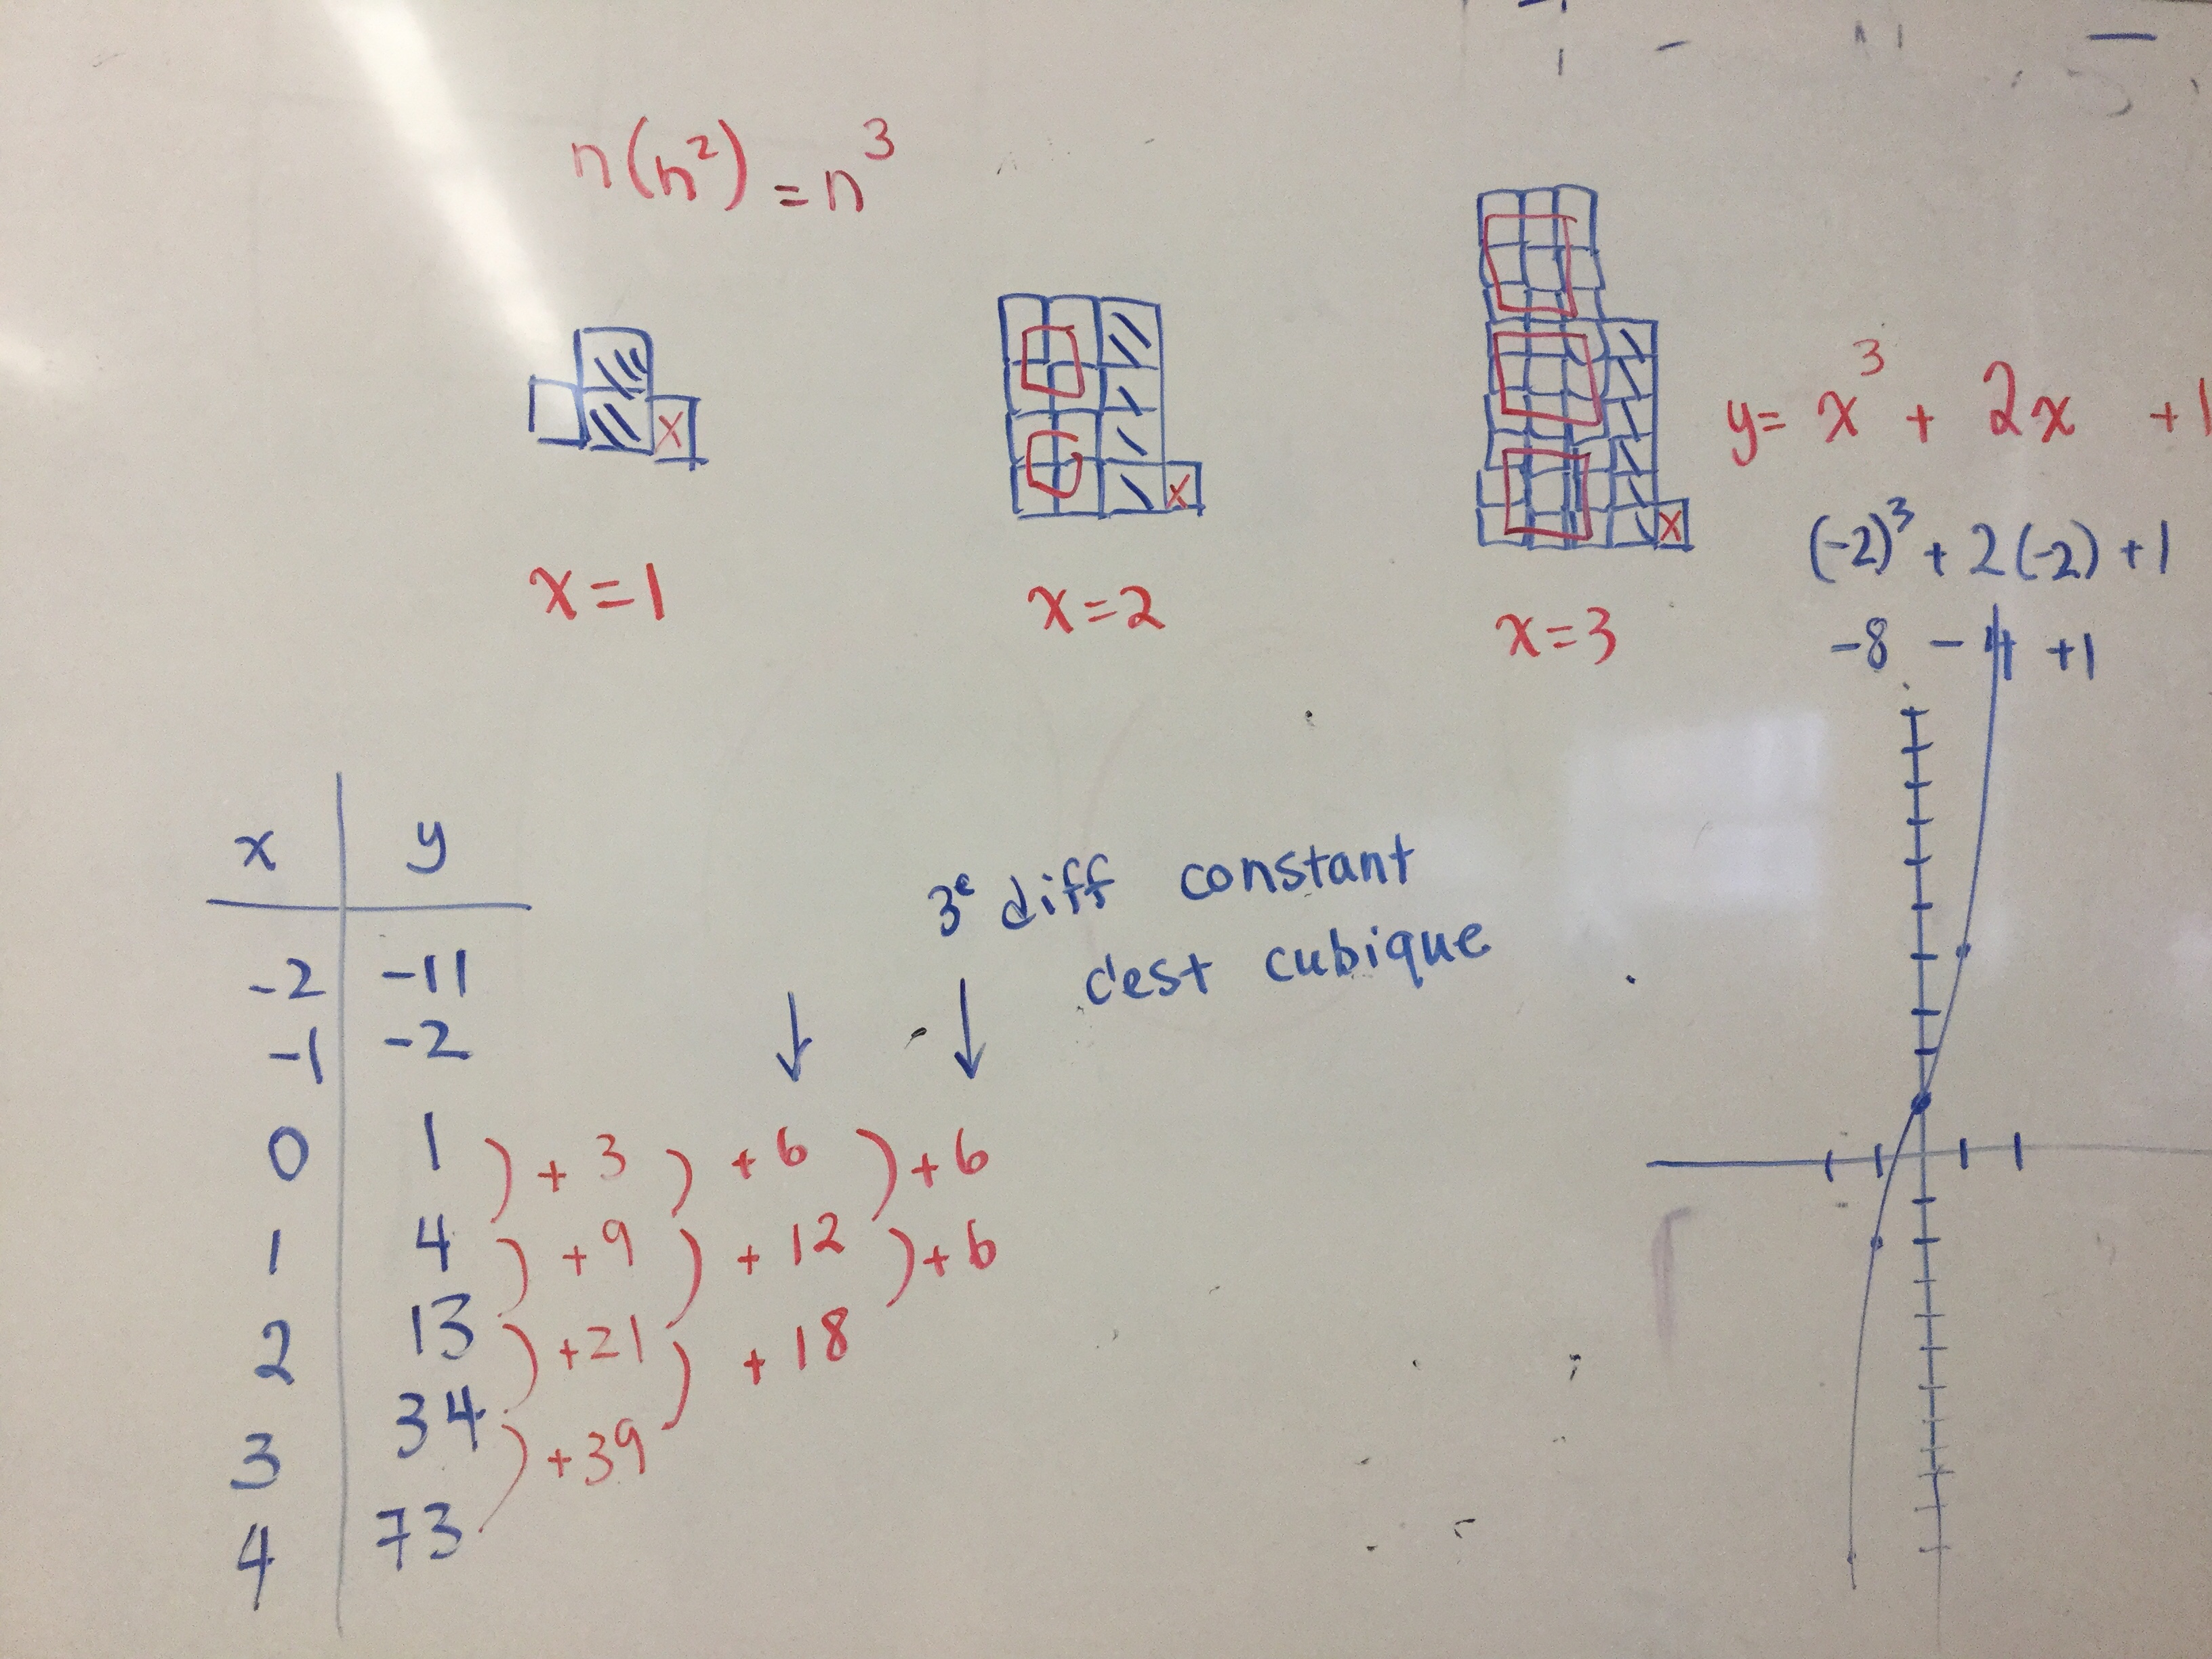 n(n²) = n³
x x x
x=1 x=2 x=3
y= x³ + 2x +1
(-2)³ + 2(-2) +1
-8 - 4 +1
3e diff constant
c'est cubique
x y
-2 -11
-1 -2
0 1 )+3 ) +6 )+6
1 4 )+9 ) +12 )+6
2 13 )+21 ) +18
3 34 )+39
4 73